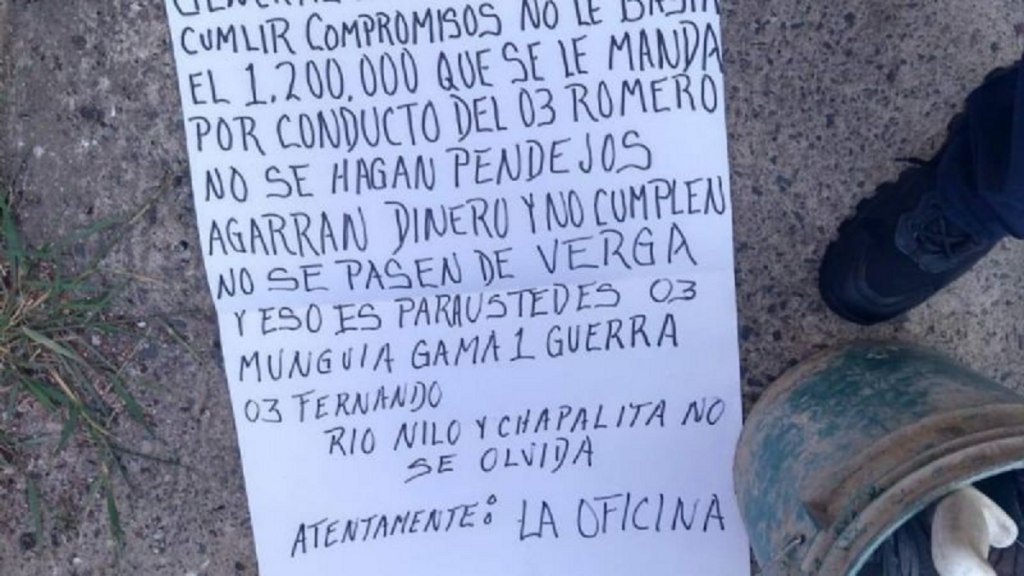 CUMLIR COMPROMISOS NO LE BASTA
EL 1.200.000 QUE SE LE MANDA
POR CONDUCTO DEL 03 ROMERO
NO SE HAGAN PENDEJOS
AGARRAN DINERO Y NO CUMPLEN
NO SE PASEN DE VERGA
Y ESO ES PARA USTEDES 03
MUNGUIA GAMA 1 GUERRA
03 FERNANDO
RIO NILO Y CHAPALITA NO
SE OLVIDA
ATENTAMENTE: LA OFICINA